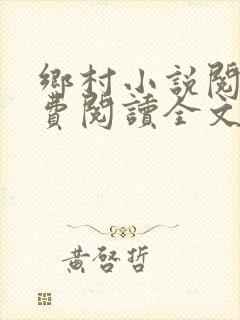 鄉村小說閱
費閱讀全文
黃啓哲